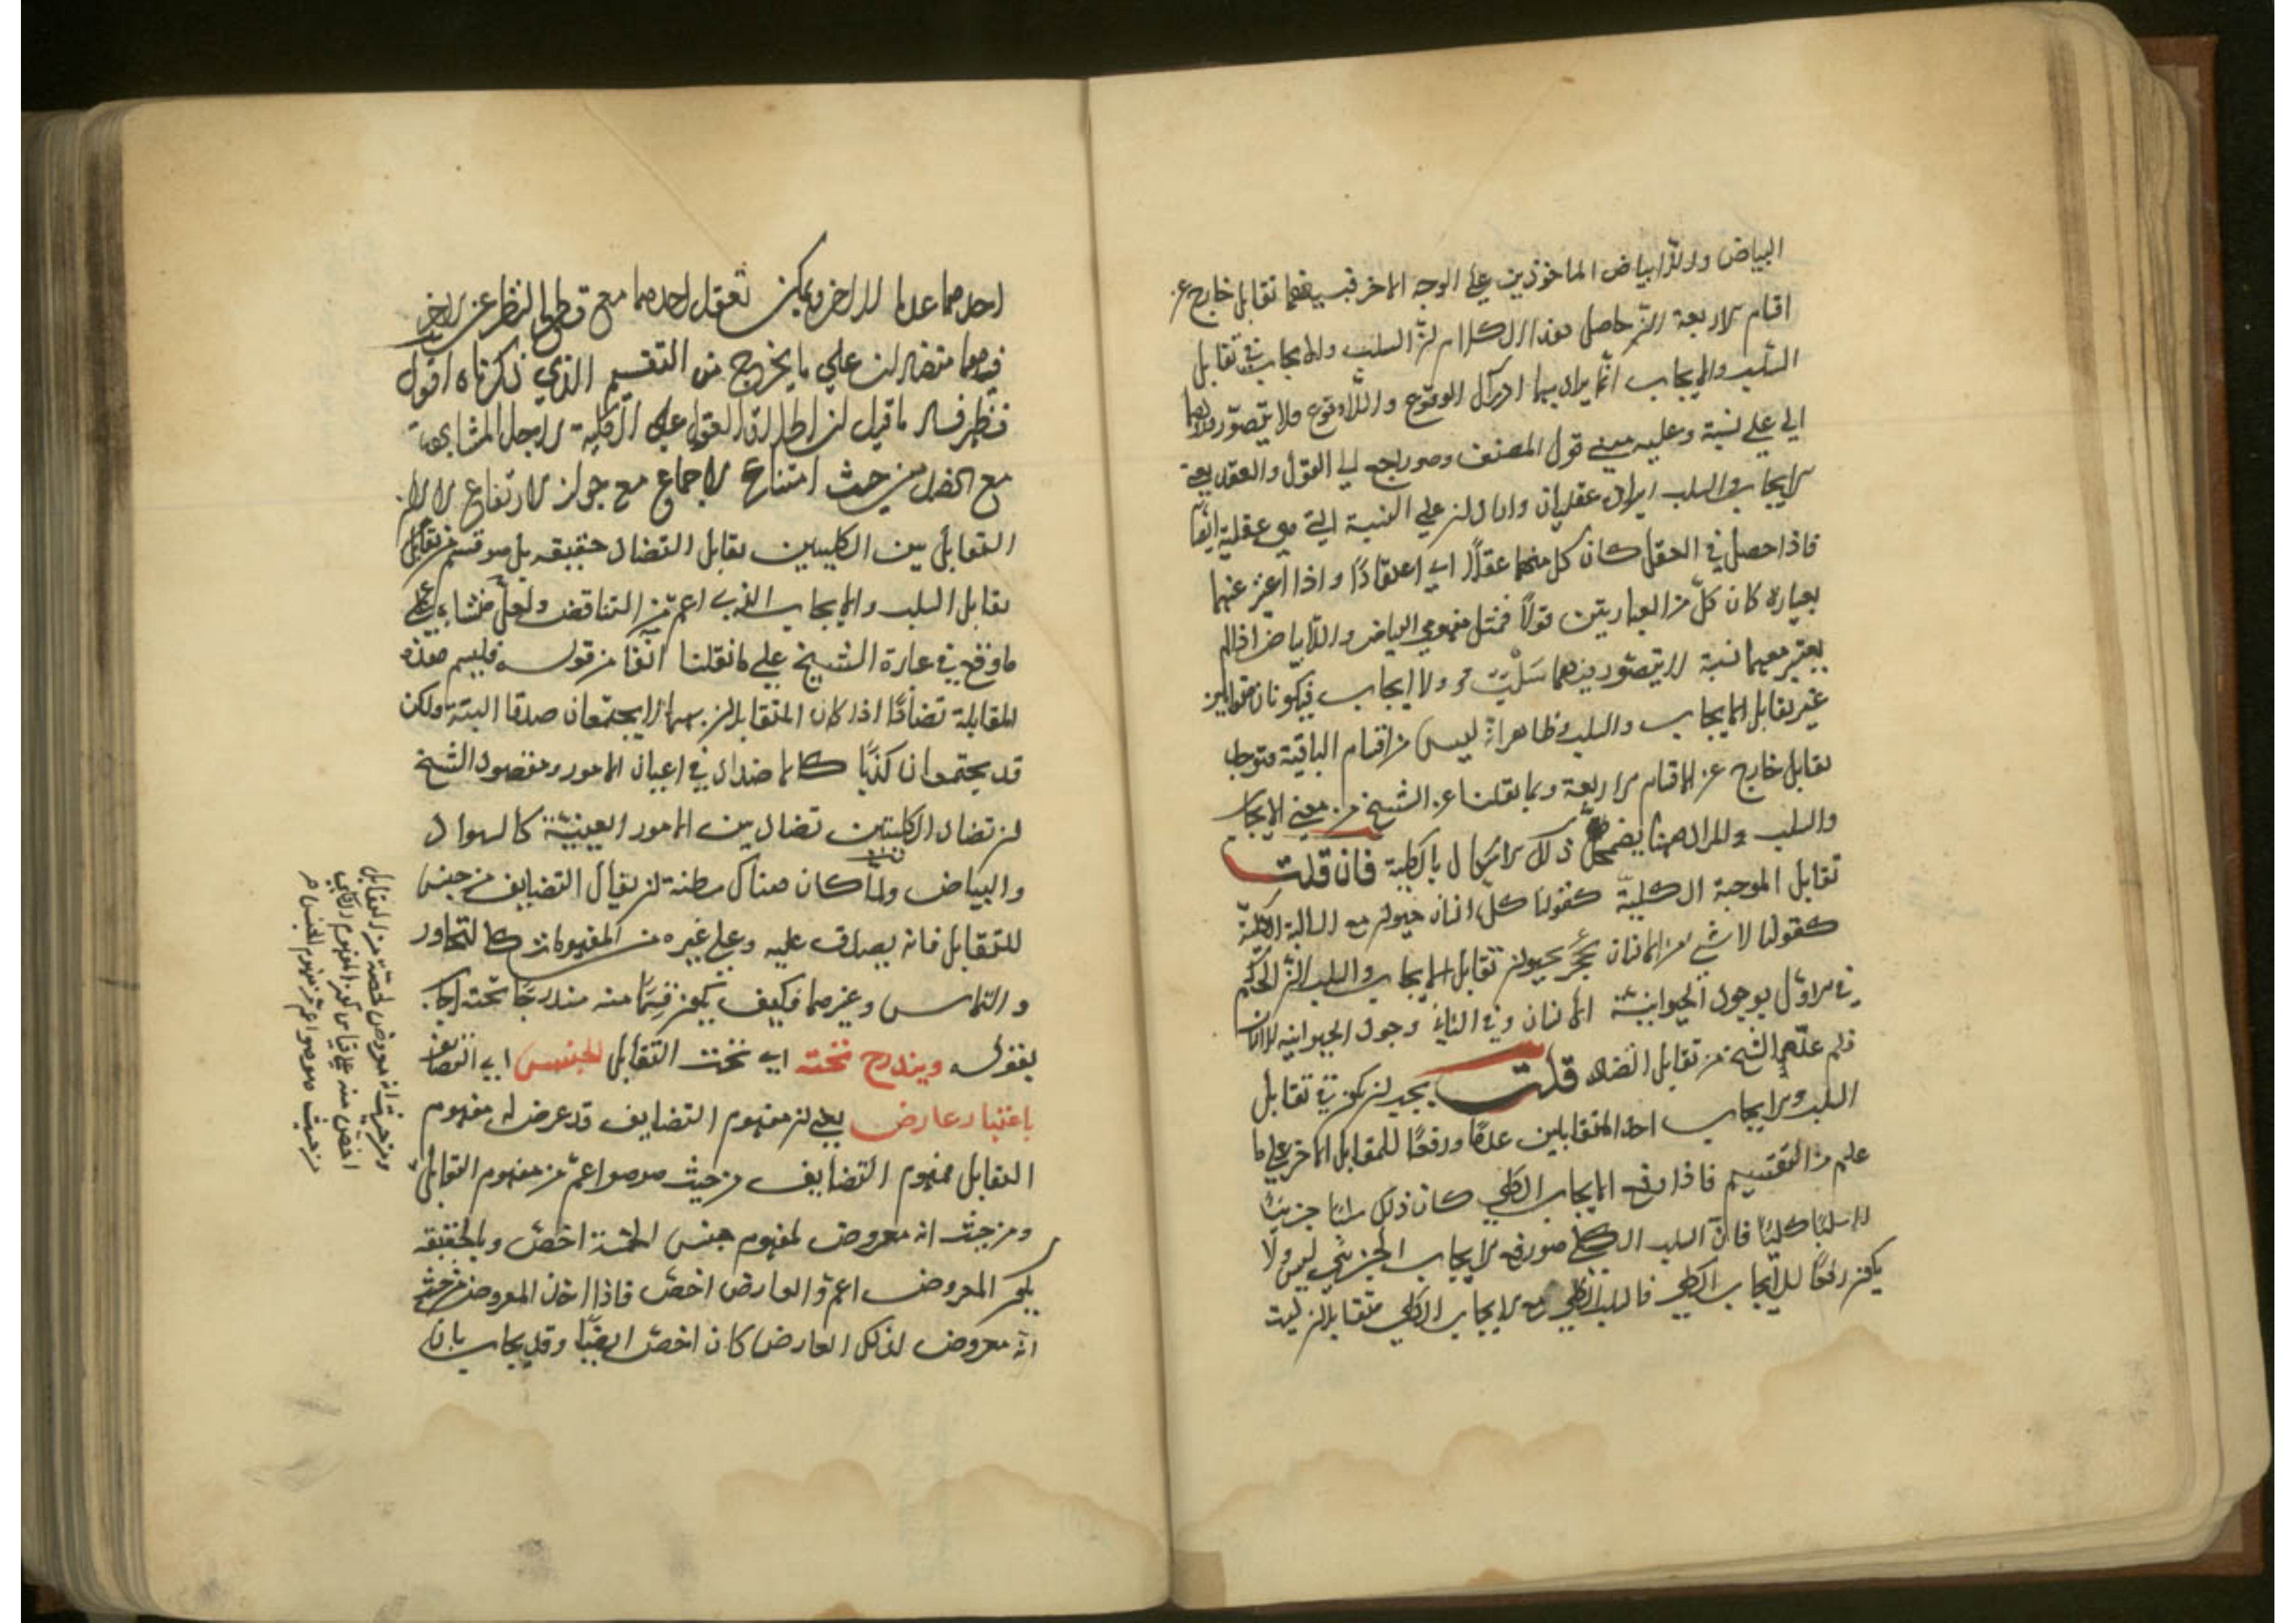 البياض واللابياض الماخوذين على الوجه الاخر فبينهما تقابل خارج عن
اقسام الاربعة حاصل هذا الكلام ان السلب والايجاب في تقابل
السلب والايجاب انما يراد بهما ادراك الوقوع واللاوقوع ولا يتصور
الا على نسبة وعليه مبنى قول المصنف وهو راجع الى القول والعقد يعني
الايجاب والسلب امران عقليان واردان على النسبة التي هي عقلية ايضا
فاذا حصل في العقل كان كل منهما عقدا اي اعتقادا واذا عبر عنهما
بعبارة كان كل من العبارتين قولا فمثل مفهومي البياض واللابياض اذا لم
يعتبر معهما نسبة لا يتصور بينهما سلب ولا ايجاب فيكونان متقابلين
غير تقابل الايجاب والسلب وظاهر انه ليس من اقسام الباقية فتوجب
تقابل خارج عن الاقسام الاربعة وبما نقلنا عن الشيخ من معنى الايجاب
والسلب والمراد ههنا يضمحل ذلك الاشكال بالكلية فان قلت
تقابل الموجبة الكلية كقولنا كل انسان حيوان مع السالبة الكلية
كقولنا لا شئ من الانسان بحيوان تقابل الايجاب والسلب لان الحكم
في الاول بوجود الحيوانية للانسان وفي الثاني وجود الحيوانية للانسان
فلم عدهما الشيخ من تقابل التضاد قلت يجب ان يكون في تقابل
السلب والايجاب احد المتقابلين عدما ورفعا للمقابل الاخر على ما
علم من التقسيم فاذا رفع الايجاب الكلي كان ذلك سلبا جزئيا
لا سلبا كليا فان السلب الكلي هو رفع الايجاب الجزئي ليس ولا
يكون رفعا للايجاب الكلي فالسلب الكلي مع الايجاب الكلي متقابلان ليست
احدهما عدما للاخر ويمكن تعقل احدهما مع قطع النظر عن الاخر
فهما متضادان على ما يخرج من التقسيم الذي ذكرناه اقول
فظهر فساد ما قيل ان اطلاق القول على الكلية لاجل المشابهة
مع الضدين من حيث امتناع الاجتماع مع جواز الارتفاع لا لان
التقابل بين الكليتين تقابل التضاد حقيقة بل هو قسم من تقابل
تقابل السلب والايجاب الذي اعم من التناقض ولعل منشاءه على
ما وقع في عبارة الشيخ على ما نقلنا آنفا من قوله فليسم هذه
المقابلة تضادا اذا كان المتقابلان بهما لا يجتمعان صدقا البتة ولكن
قد يجتمعان كذبا كالاضداد في اعيان الامور ومقصود الشيخ
ان تضاد الكليتين تضاد بين الامور العينية كالسواد
والبياض ولما كان هناك مظنة ان يقال التضايف من جنس
للتقابل فانه يصدق عليه وعلى غيره من المفهومات كالتجاور
والتماس وغيرهما فكيف يكون قسما منه مندرجا تحته اجاب
بقوله ويندرج تحته اي تحت التقابل الجنس اي التضايف
باعتبار عارض يعني ان مفهوم التضايف قد عرض له مفهوم
التقابل فمفهوم التضايف من حيث هو هو اعم من مفهوم التقابل
ومن حيث انه معروض لمفهوم جنس الخمسة اخص وبالحقيقة
يكون المعروض اعم والعارض اخص فاذا اخذ المعروض من حيث
انه معروض لذلك العارض كان اخص ايضا وقد يجاب بان
ومن حيث انه معروض لحصة من التقابل
اخص منه على قياس كون المفهوم الكلي
من حيث هو هو اعم من مفهوم الجنس